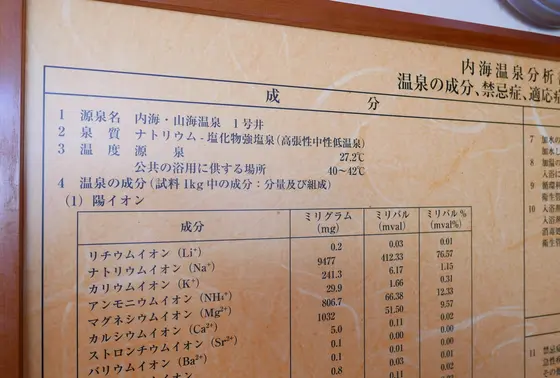 内海温泉分析
温泉の成分、禁忌症、適応症
成 分
1 源泉名 内海・山海温泉 1号井
2 泉 質 ナトリウム - 塩化物強塩泉(高張性中性低温泉)
3 温 度 源 泉 27.2℃
公共の浴用に供する場所 40～42℃
4 温泉の成分(試料1kg中の成分:分量及び組成)
(1) 陽イオン
成分 ミリグラム (mg) ミリバル (mval) ミリバル% (mval%)
リチウムイオン (Li⁺) 0.2 0.03 0.01
ナトリウムイオン (Na⁺) 9477 412.33 76.57
カリウムイオン (K⁺) 241.3 6.17 1.15
アンモニウムイオン (NH₄⁺) 29.9 1.66 0.31
マグネシウムイオン (Mg²⁺) 806.7 66.38 12.33
カルシウムイオン (Ca²⁺) 1032 51.50 9.57
ストロンチウムイオン (Sr²⁺) 5.0 0.11 0.02
バリウムイオン (Ba²⁺) 0.1 0.00 0.00
0.1 0.01 0.00
0.8 0.03 0.01
0.11 0.02
7 加水の
加水し
8 加温の
入浴に
9 循環
衛生管
10 入浴
入浴
消毒処
衛生管
11 禁忌症
急性
その